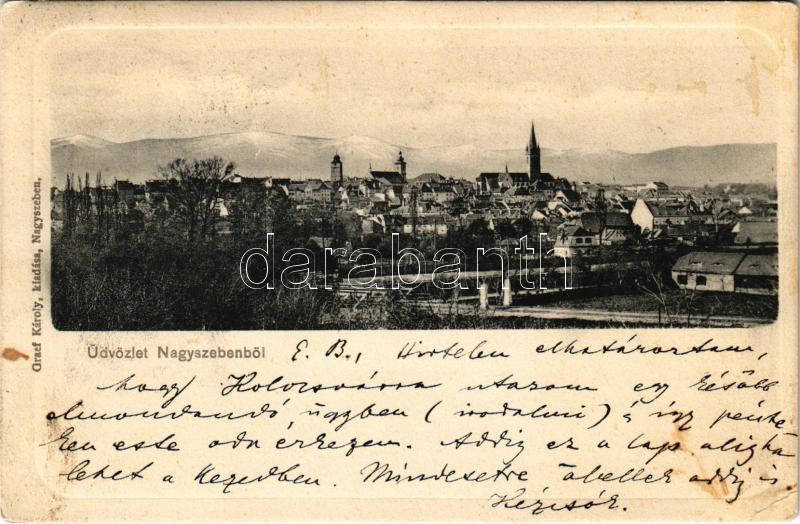 Graef Károly, kiadása, Nagyszeben.
darabanth
Üdvözlet Nagyszebenből
E. B., Hirtelen elhatároztam,
hogy Kolozsvárra utazom egy később
elmondandó ügyben (irodalmi) s így pénte
ken este oda érkezem. Addig ez a lap aligha
lehet a Kezedben. Mindesetre ölellek addig is
Kézcsók.